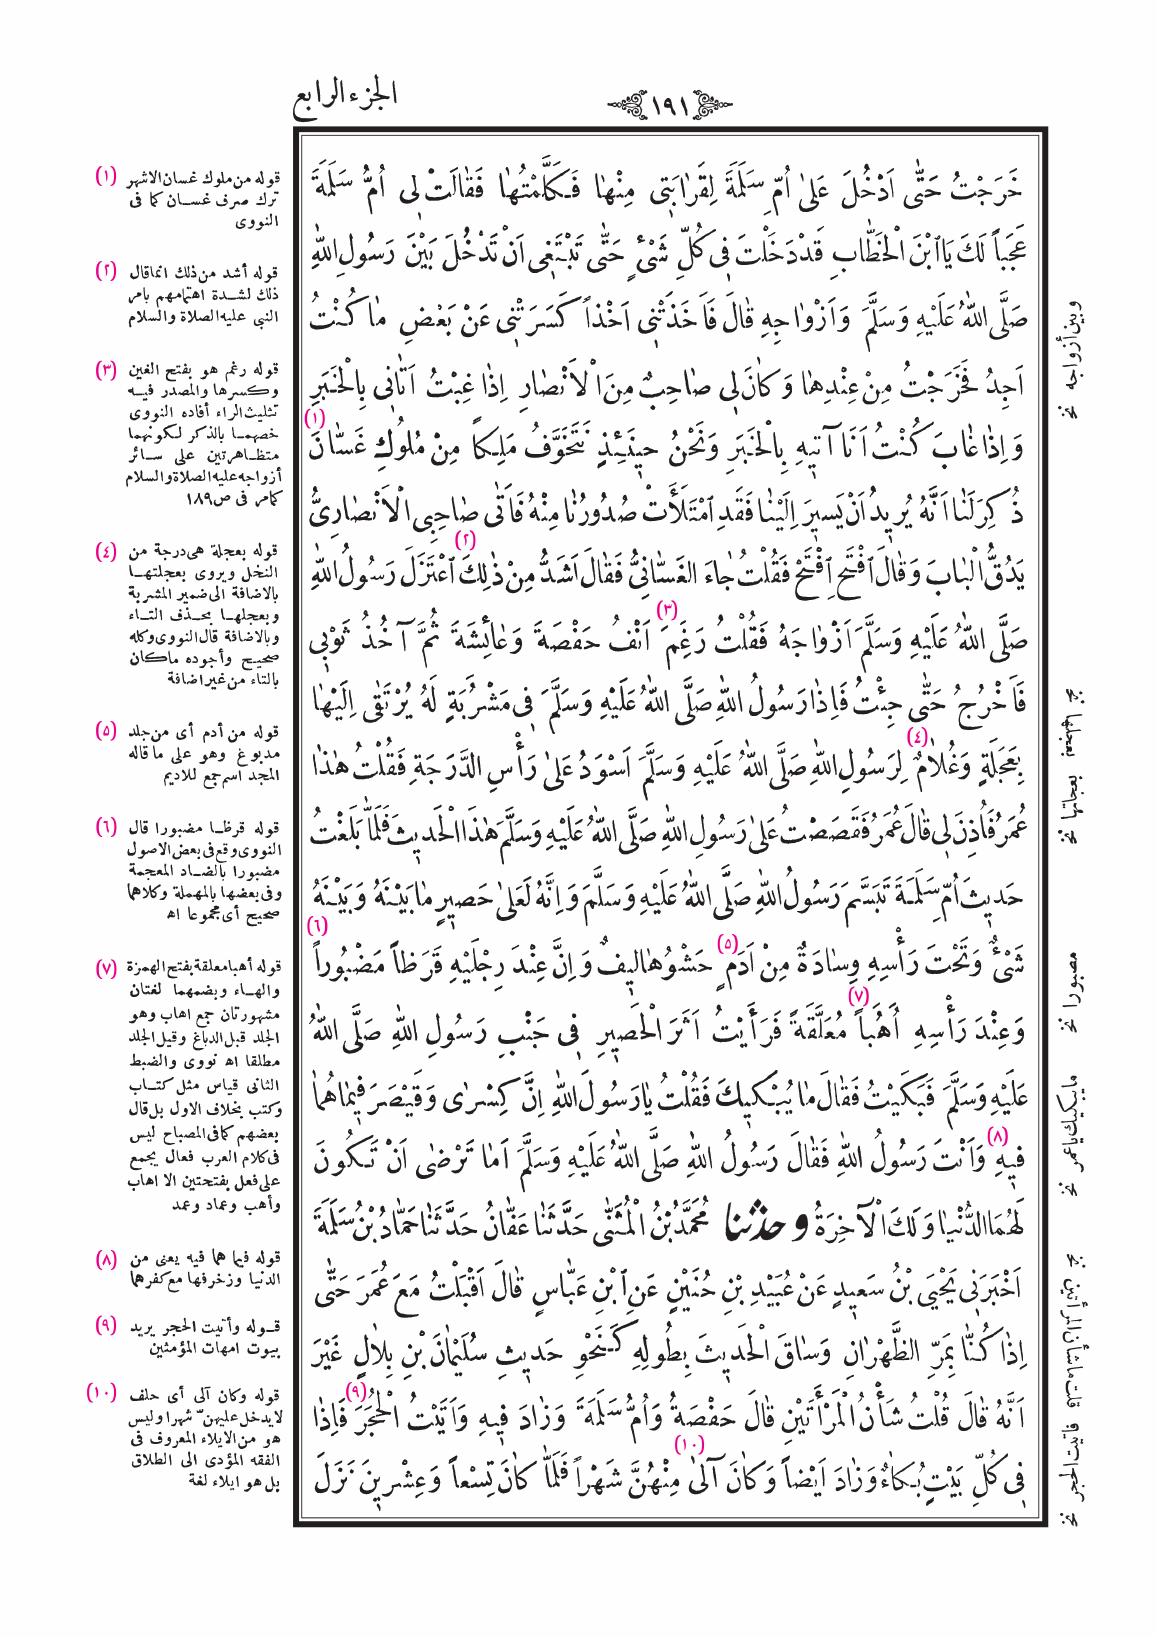 الجزء الرابع
١٩١
خَرَجْتُ حَتّٰى اَدْخُلَ عَلىٰ اُمِّ سَلَمَةَ لِقَرَابَتِى مِنْهَا فَكَلَّمْتُهَا فَقَالَتْ لِى اُمُّ سَلَمَةَ
عَجَباً لَكَ يَا ابْنَ الْخَطَّابِ قَدْ دَخَلْتَ فِى كُلِّ شَىْءٍ حَتّٰى تَبْتَغِىَ اَنْ تَدْخُلَ بَيْنَ رَسُولِ اللّٰهِ
صَلَّى اللّٰهُ عَلَيْهِ وَسَلَّمَ وَاَزْوَاجِهِ قَالَ فَاَخَذَتْنِى اَخْذاً كَسَرَتْنِى عَنْ بَعْضِ مَا كُنْتُ
اَجِدُ فَخَرَجْتُ مِنْ عِنْدِهَا وَكَانَ لِى صَاحِبٌ مِنَ الْاَنْصَارِ اِذَا غِبْتُ اَتَانِى بِالْخَبَرِ
وَاِذَا غَابَ كُنْتُ اَنَا آتِيهِ بِالْخَبَرِ وَنَحْنُ حِينَئِذٍ نَتَخَوَّفُ مَلِكاً مِنْ مُلُوكِ غَسَّانَ (١)
ذُكِرَ لَنَا اَنَّهُ يُرِيدُ اَنْ يَسِيرَ اِلَيْنَا فَقَدِ امْتَلَأَتْ صُدُورُنَا مِنْهُ فَاَتٰى صَاحِبِى الْاَنْصَارِىُّ
يَدُقُّ الْبَابَ وَقَالَ افْتَحِ افْتَحْ فَقُلْتُ جَاءَ الْغَسَّانِىُّ فَقَالَ اَشَدُّ مِنْ ذٰلِكَ (٢) اعْتَزَلَ رَسُولُ اللّٰهِ
صَلَّى اللّٰهُ عَلَيْهِ وَسَلَّمَ اَزْوَاجَهُ فَقُلْتُ رَغِمَ (٣) اَنْفُ حَفْصَةَ وَعَائِشَةَ ثُمَّ آخُذُ ثَوْبِى
فَاَخْرُجُ حَتّٰى جِئْتُ فَاِذَا رَسُولُ اللّٰهِ صَلَّى اللّٰهُ عَلَيْهِ وَسَلَّمَ فِى مَشْرُبَةٍ لَهُ يُرْتَقٰى اِلَيْهَا
بِعَجَلَةٍ (٤) وَغُلَامٌ لِرَسُولِ اللّٰهِ صَلَّى اللّٰهُ عَلَيْهِ وَسَلَّمَ اَسْوَدُ عَلىٰ رَأْسِ الدَّرَجَةِ فَقُلْتُ هٰذَا
عُمَرُ فَاُذِنَ لِى قَالَ عُمَرُ فَقَصَصْتُ عَلىٰ رَسُولِ اللّٰهِ صَلَّى اللّٰهُ عَلَيْهِ وَسَلَّمَ هٰذَا الْحَدِيثَ فَلَمَّا بَلَغْتُ
حَدِيثَ اُمِّ سَلَمَةَ تَبَسَّمَ رَسُولُ اللّٰهِ صَلَّى اللّٰهُ عَلَيْهِ وَسَلَّمَ وَاِنَّهُ لَعَلىٰ حَصِيرٍ مَا بَيْنَهُ وَبَيْنَهُ
شَىْءٌ وَتَحْتَ رَأْسِهِ وِسَادَةٌ مِنْ اَدَمٍ (٥) حَشْوُهَا لِيفٌ وَاِنَّ عِنْدَ رِجْلَيْهِ قَرَظاً مَضْبُوراً (٦)
وَعِنْدَ رَأْسِهِ اُهُباً (٧) مُعَلَّقَةً فَرَأَيْتُ اَثَرَ الْحَصِيرِ فِى جَنْبِ رَسُولِ اللّٰهِ صَلَّى اللّٰهُ
عَلَيْهِ وَسَلَّمَ فَبَكَيْتُ فَقَالَ مَا يُبْكِيكَ فَقُلْتُ يَا رَسُولَ اللّٰهِ اِنَّ كِسْرٰى وَقَيْصَرَ فِيمَا هُمَا
فِيهِ (٨) وَاَنْتَ رَسُولُ اللّٰهِ فَقَالَ رَسُولُ اللّٰهِ صَلَّى اللّٰهُ عَلَيْهِ وَسَلَّمَ اَمَا تَرْضٰى اَنْ تَكُونَ
لَهُمَا الدُّنْيَا وَلَكَ الْآخِرَةُ وحدثنا مُحَمَّدُ بْنُ الْمُثَنّٰى حَدَّثَنَا عَفَّانُ حَدَّثَنَا حَمَّادُ بْنُ سَلَمَةَ
اَخْبَرَنِى يَحْيَى بْنُ سَعِيدٍ عَنْ عُبَيْدِ بْنِ حُنَيْنٍ عَنِ ابْنِ عَبَّاسٍ قَالَ اَقْبَلْتُ مَعَ عُمَرَ حَتّٰى
اِذَا كُنَّا بِمَرِّ الظَّهْرَانِ وَسَاقَ الْحَدِيثَ بِطُولِهِ كَنَحْوِ حَدِيثِ سُلَيْمَانَ بْنِ بِلَالٍ غَيْرَ
اَنَّهُ قَالَ قُلْتُ شَأْنُ الْمَرْأَتَيْنِ قَالَ حَفْصَةُ وَاُمُّ سَلَمَةَ وَزَادَ فِيهِ وَاَتَيْتُ الْحُجَرَ (٩) فَاِذَا
فِى كُلِّ بَيْتٍ بُكَاءٌ وَزَادَ اَيْضاً وَكَانَ آلىٰ (١٠) مِنْهُنَّ شَهْراً فَلَمَّا كَانَ تِسْعاً وَعِشْرِينَ نَزَلَ
(١) قوله من ملوك غسان الاشهر
ترك صرف غسان كما فى
النووى
(٢) قوله أشد من ذلك انما قال
ذلك لشدة اهتمامهم بامر
النبى عليه الصلاة والسلام
(٣) قوله رغم هو بفتح الغين
وكسرها والمصدر فيه
تثليث الراء أفاده النووى
خصهما بالذكر لكونهما
متظاهرتين على سائر
أزواجه عليه الصلاة والسلام
كما مر فى ص١٨٩
(٤) قوله بعجلة هى درجة من
النخل ويروى بعجلتها
بالاضافة الى ضمير المشربة
وبعجلها بحذف التاء
وبالاضافة قال النووى وكله
صحيح وأجوده ما كان
بالتاء من غير اضافة
(٥) قوله من أدم أى من جلد
مدبوغ وهو على ما قاله
المجد اسم جمع للاديم
(٦) قوله قرظا مضبورا قال
النووى وقع فى بعض الاصول
مضبورا بالضاد المعجمة
وفى بعضها بالمهملة وكلاهما
صحيح أى مجموعا اه
(٧) قوله أهبا معلقة بفتح الهمزة
والهاء وبضمهما لغتان
مشهورتان جمع اهاب وهو
الجلد قبل الدباغ وقيل الجلد
مطلقا اه نووى والضبط
الثانى قياس مثل كتاب
وكتب بخلاف الاول بل قال
بعضهم كما فى المصباح ليس
فى كلام العرب فعال يجمع
على فعل بفتحتين الا اهاب
وأهب وعماد وعمد
(٨) قوله فيما هما فيه يعنى من
الدنيا وزخرفها مع كفرهما
(٩) قوله وأتيت الحجر يريد
بيوت امهات المؤمنين
(١٠) قوله وكان آلى أى حلف
لا يدخل عليهنّ شهرا وليس
هو من الايلاء المعروف فى
الفقه المؤدى الى الطلاق
بل هو ايلاء لغة
وبين أزواجه نخ
بعجلتها نخ بعجلها نخ
مصبورا نخ
ما يبكيك يا عمر نخ
قلت ما شأن المرأتين نخ
فاتيت الحجر نخ